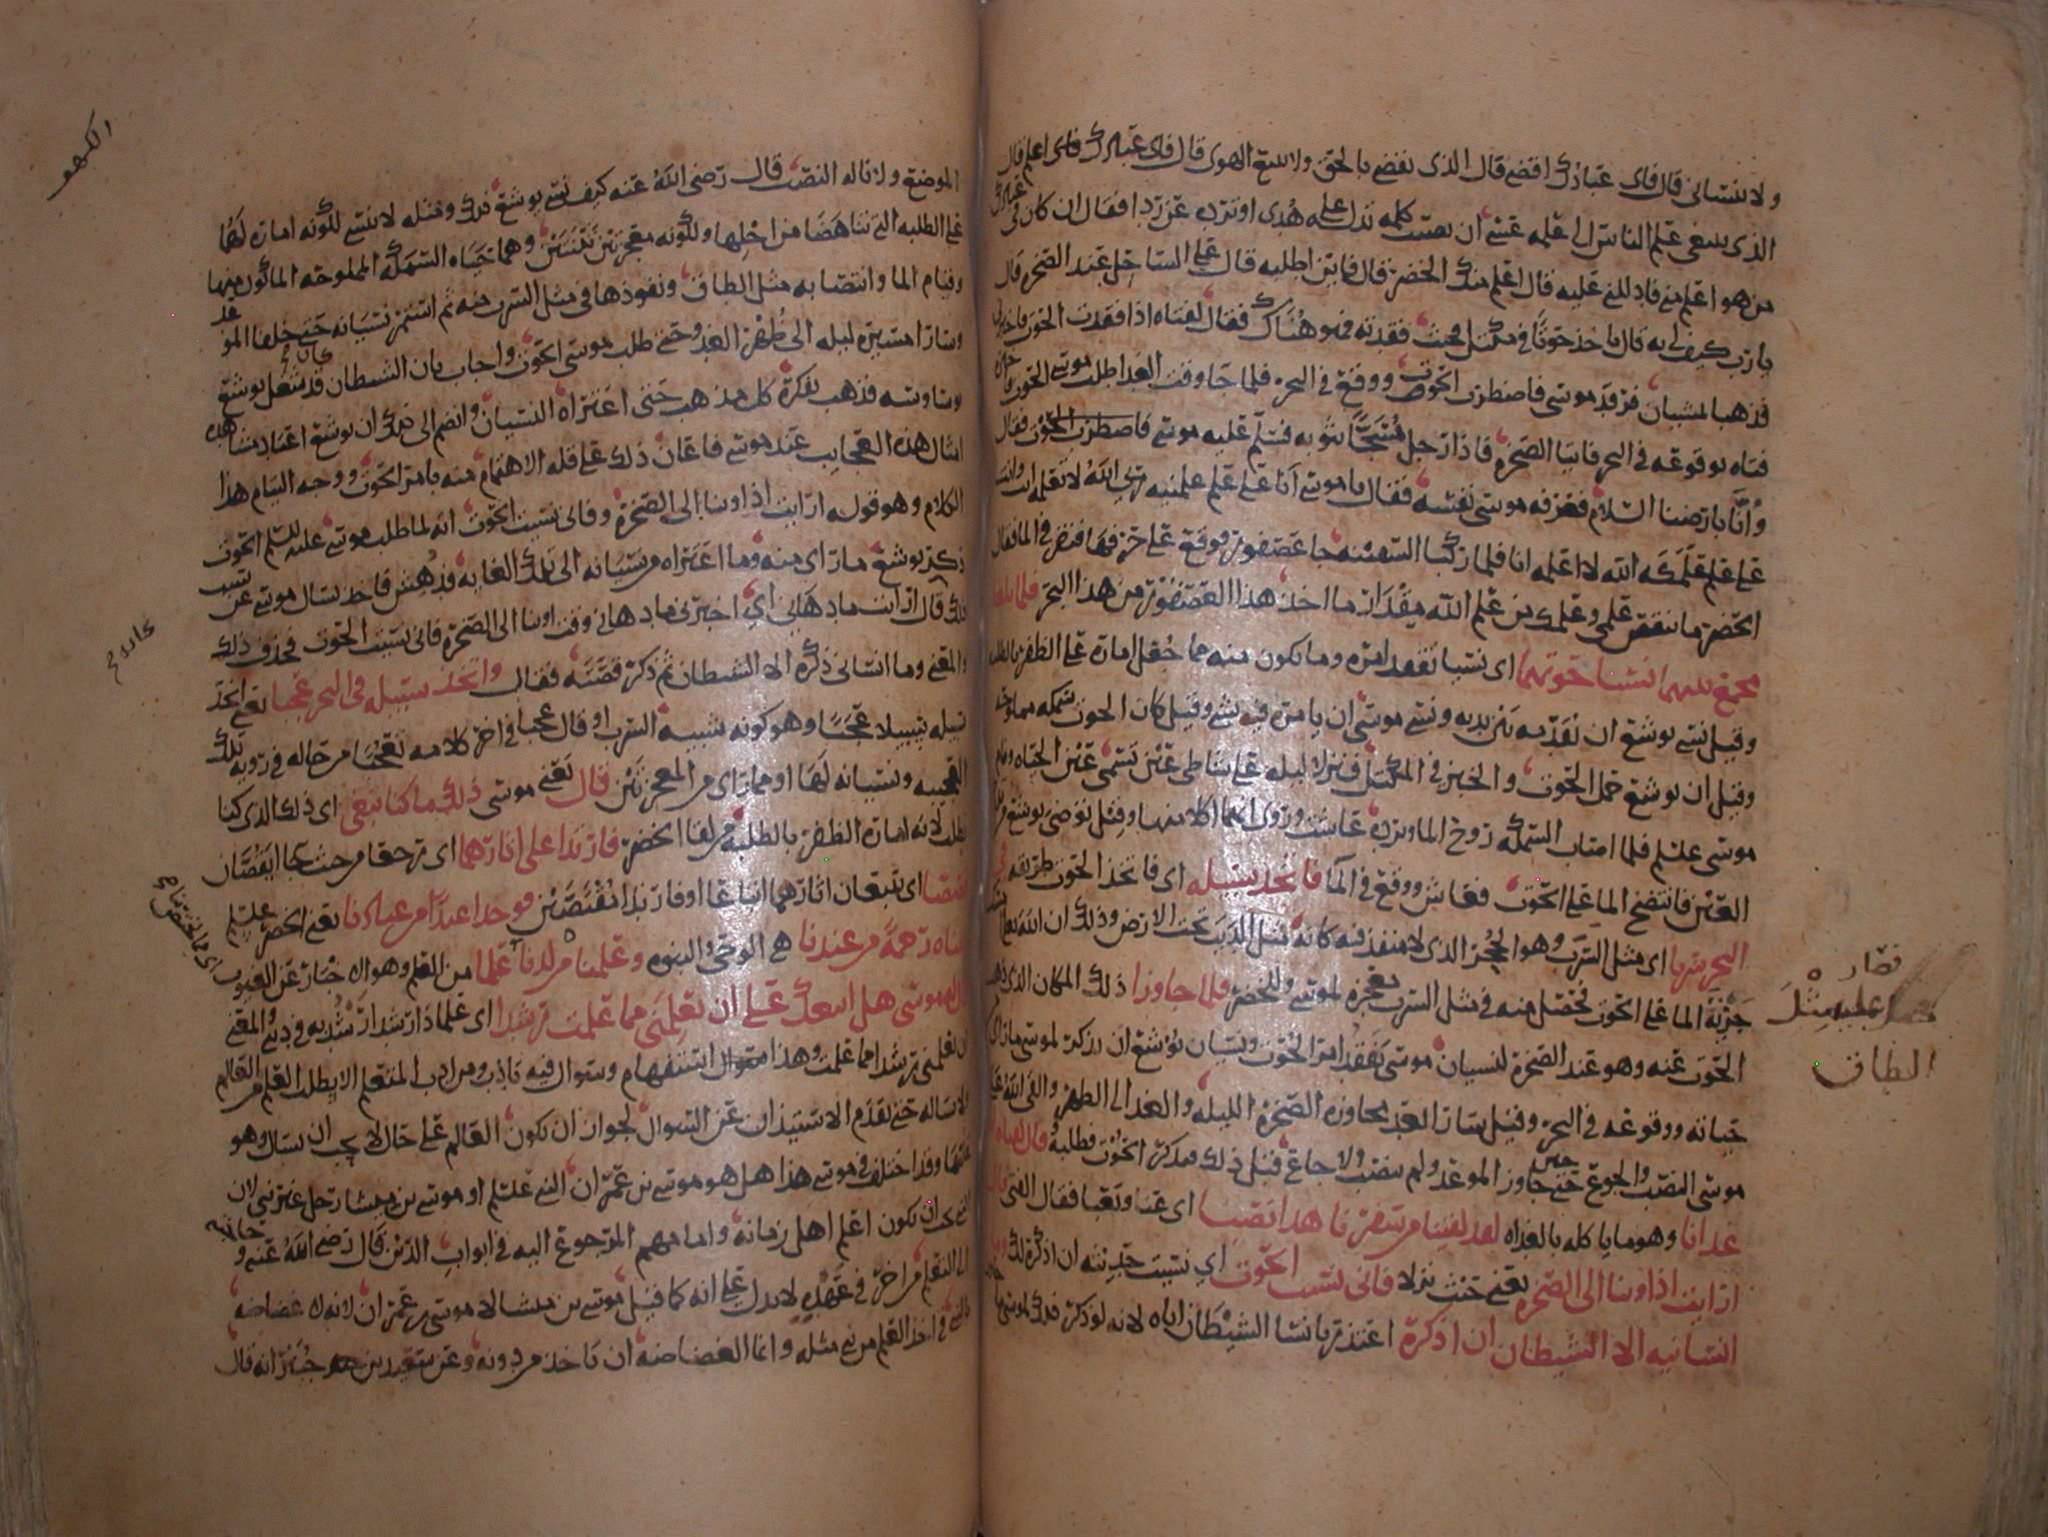 ولا ينساني قال فاي عبادك اقضى قال الذي يقضي بالحق ولا يتبع الهوى قال فاي عبادك اعلم قال
الذي يبتغي علم الناس الى علمه عسى ان يصيب كلمه تدله على هدى او ترده عن ردا فقال ان كان في عبادك
من هو اعلم مني فادللني عليه قال اعلم منك الخضر قال فاين اطلبه قال على الساحل عند الصخره قال
يا رب كيف لي به قال تاخذ حوتا في مكتل فحيث فقدته فهو هناك فقال لفتاه اذا فقدت الحوت فاخبرني
فذهبا يمشيان فرقد موسى فاضطرب الحوت ووقع في البحر فلما جا وقت الغدا طلب موسى الحوت فاخبره
فتاه بوقوعه في البحر فاتيا الصخره فاذا رجل مسجا بثوبه فسلم عليه موسى فقال
وانا بارضنا السلام فعرفه موسى نفسه فقال يا موسى انا على علم علمنيه الله لا تعلمه انت وانت
على علم علمكه الله لا اعلمه انا فلما ركبا السفينه جا عصفور فوقع على حرفها فنقر في الما فقال
الخضر ما ينقص علمي وعلمك من علم الله مقدار ما اخذ هذا العصفور من هذا البحر فلما بلغا
مجمع بينهما نسيا حوتهما اي نسيا تفقد امره وما يكون منه مما جعل اماره على الظفر بالطلبه
وقيل نسي يوشع ان يقدمه بين يديه ونسي موسى ان يامره فيه بشي وقيل كان الحوت سمكه مملوحه
وقيل ان يوشع حمل الحوت والخبز في المكتل فنزلا ليله على شاطي عين تسمى عين الحياه ونام
موسى عليلم فلما اصاب السمكه روح الما وبرده عاشت وروى انهما اكلا منها وقيل توضى يوشع من
العين فانتضح الما على الحوت فعاش ووقع في الما فاتخذ سبيله اي فاتخذ الحوت طريقه في
البحر سربا اي مثل السرب وهو الجحر الذي لا منفذ فيه وذلك ان الله تعالى
جريه الما على الحوت فحصل منه في مثل السرب معجزه لموسى وللخضر فلما جاوزا ذلك المكان الذي ذهب
الحوت عنه وهو عند الصخره لنسيان موسى تفقد امر الحوت ونسيان يوشع ان يذكر لموسى ما راى
حياته ووقوعه في البحر وقيل سارا بعد مجاوزه الصخره الليله والغد الى الظهر والقى الله على
موسى النصب والجوع حين جاوز الموعد ولم ينصب ولا جاع قبل ذلك فيذكر الحوت فطلبه قال لفتاه اتنا
غدانا وهو ما ياكله بالغداه لقد لقينا من سفرنا هذا نصبا اي عنا وتعبا فقال الفتى قال
ارايت اذ اوينا الى الصخره يعني حيث نزلا فاني نسيت الحوت اي نسيت حديثه ان اذكره لك وما
انسانيه الا الشيطان ان اذكره اعتذر بانسا الشيطان اياه لانه لو ذكر ذلك لموسى
فصار
عليه مثل
الطاق
الكهف
الموضع ولا ناله النصب قال رضى الله عنه كيف نسى يوشع ذلك ومثله لا ينسى لكونه اماره لهما
على الطلبه التي تناهضا من اجلها ولكونه معجزتين ثنتين وهما حياه السمكه المملوحه الماكول منها
وقيام الما وانتصابه مثل الطاق ونفوذها في مثل السرب منه ثم استمر نسيانه حتى خلفا الموعد
وسارا مسيره ليله الى ظهر الغد وحتى طلب موسى الحوت واجاب بان الشيطان كان قد شغل يوشع
بوساوسه فذهب بفكره كل مذهب حتى اعتراه النسيان وانضم الى ذلك ان يوشع اعتاد مشاهده
امثال هذه العجايب عند موسى فاعان ذلك على قله الاهتمام منه بامر الحوت ووجه التيام هذا
الكلام وهو قوله ارايت اذ اوينا الى الصخره فاني نسيت الحوت انه لما طلب موسى عليه السلم الحوت
ذكر يوشع ما راى منه وما اعتراه من نسيانه الى تلك الغايه فدهش فاخذ يسال موسى عن سبب
ذلك قال ارايت ما دهاني اي اخبرني ما دهاني وقت اوينا الى الصخره فاني نسيت الحوت فحذف ذلك
والمعنى وما انساني ذكره الا الشيطان ثم ذكر قصته فقال واتخذ سبيله في البحر عجبا يعني اتخذ
سبيله سبيلا عجبا وهو كونه شبيه السرب او قال عجبا في اخر كلامه تعجبا من حاله في رويه تلك
العجيبه ونسيانه لها او مما راى من المعجزتين قال يعني موسى ذلك ما كنا نبغي اي ذلك الذي كنا
نطلب لانه اماره الظفر بالطلبه من لقا الخضر فارتدا على اثارهما اي رجعا من حيث جا يقصان
قصصا اي يتبعان اثارهما اتباعا او فارتدا مقتصين فوجدا عبدا من عبادنا يعني الخضر عليلم
اتيناه رحمة من عندنا هي الوحي والنبوه وعلمناه من لدنا علما من العلم وهو الاخبار عن الغيوب
قال له موسى هل اتبعك على ان تعلمني مما علمت رشدا اي علما ذا رشد ارشد به في ديني والمعنى
ان تعلمني رشدا مما علمت وهذا استفهام وسوال فيه تاذب ومن ادب المتعلم الا يطلب العلم من العالم
الا ساله حتى يقدم الاستيذان عن السوال لجواز ان يكون العالم على حال لا يجب ان يسال وهو
عليها وقد اختلف في موسى هذا هل هو موسى بن عمران النبي عليلم او موسى بن ميشا رجل غير نبي لان
النبي يجب ان يكون اعلم اهل زمانه وامامهم المرجوع اليه في ابواب الدين قال رضى الله عنه وحاجته
الى التعلم من اخر في عهده لا يدل على انه كما قيل موسى بن ميشا لا موسى بن عمران لانه لا غضاضه
بالنبي في اخذ العلم من نبي مثله وانما الغضاضه ان ياخذ من دونه وعن سعيد بن جبير انه قال